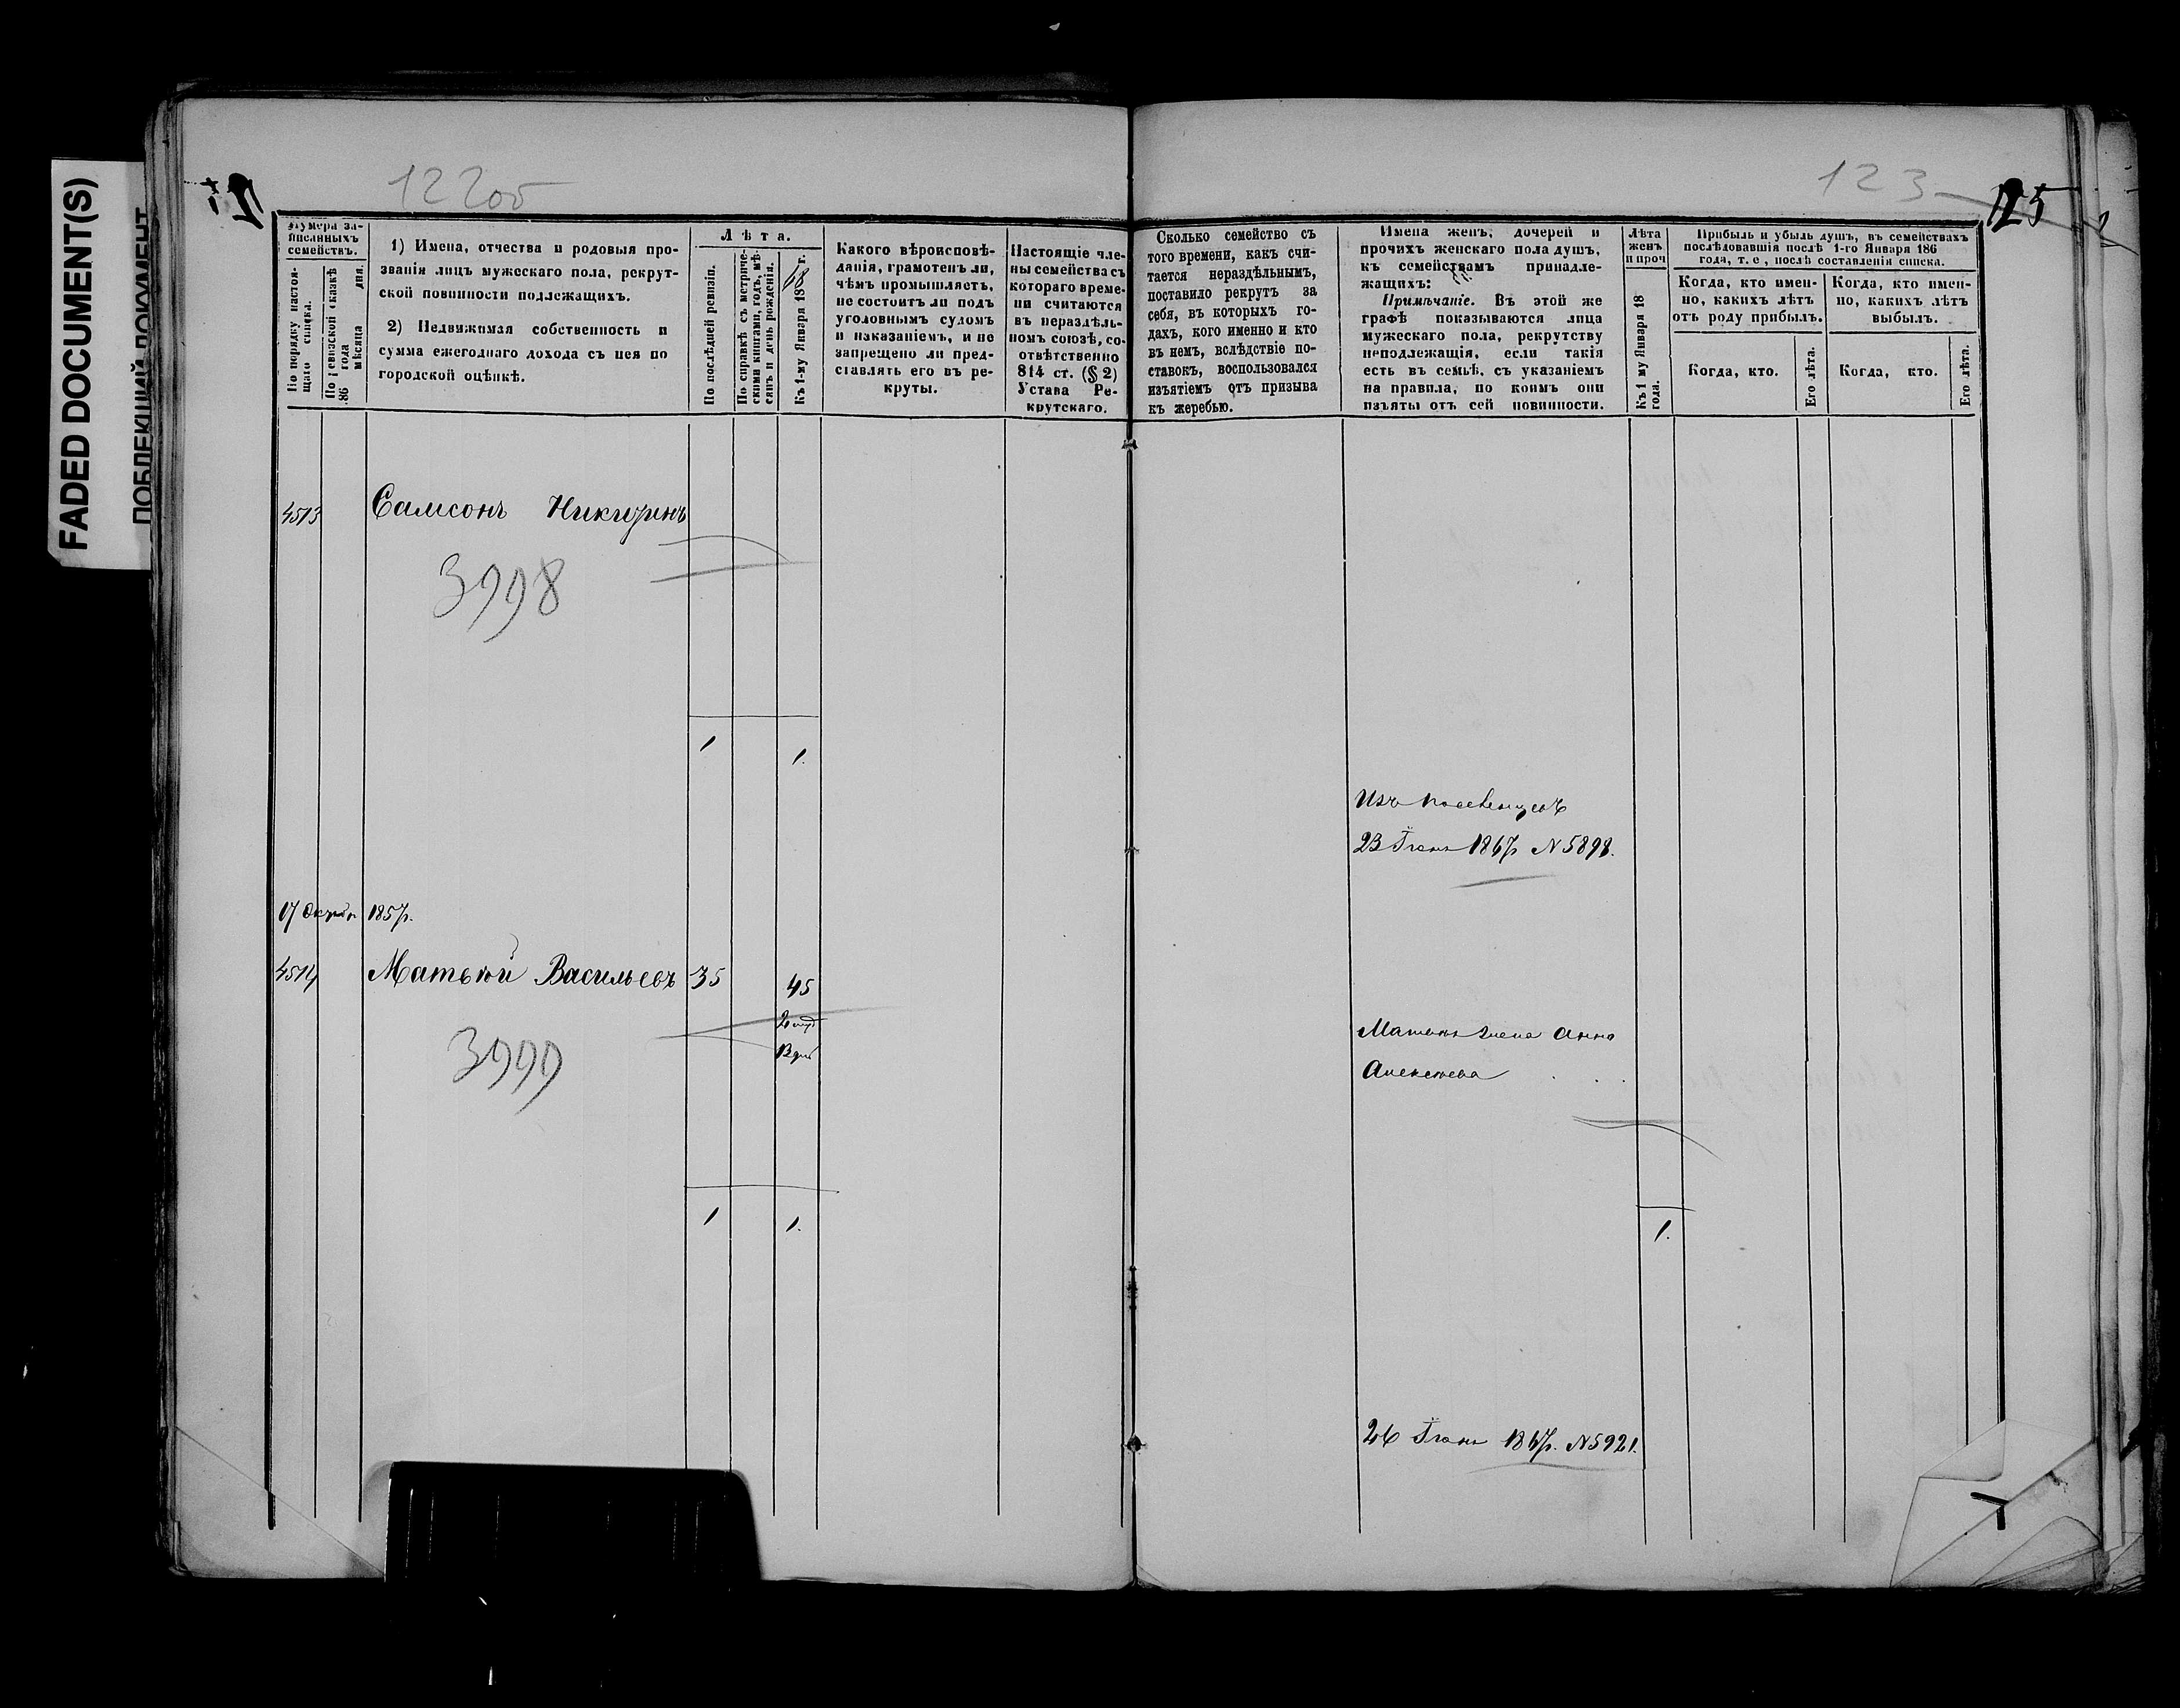 FADED DOCUMENT(S)
ПОБЛЕКШИЙ ДОКУМЕНТ
122об
123
125
Нумера за-
писанныхъ
семействъ.
По порядку настоя-
щаго списка.
По ревизской сказкѣ
186 года
мѣсяца дня.
1) Имена, отчества и родовыя про-
званія лицъ мужескаго пола, рекрут-
ской повинности подлежащихъ.
2) Недвижимая собственность и
сумма ежегоднаго дохода съ нея по
городской оцѣнкѣ.
Лѣта.
По послѣдней ревизіи.
По справкѣ съ метриче-
скими книгами, годъ, мѣ-
сяцъ и день рожденія.
Къ 1-му Января 1868 г.
Какого вѣроисповѣ-
данія, грамотенъ ли,
чѣмъ промышляетъ,
не состоитъ ли подъ
уголовнымъ судомъ
и наказаніемъ, и не
запрещено ли пред-
ставлять его въ ре-
круты.
Настоящіе чле-
ны семейства съ
котораго време-
ни считаются
въ нераздѣль-
номъ союзѣ, со-
отвѣтственно
814 ст. (§ 2)
Устава Ре-
крутскаго.
Сколько семейство съ
того времени, какъ счи-
тается нераздѣльнымъ,
поставило рекрутъ за
себя, въ которыхъ го-
дахъ, кого именно и кто
въ немъ, вслѣдствіе по-
ставокъ, воспользовался
изъятіемъ отъ призыва
къ жеребью.
Имена женъ, дочерей и
прочихъ женскаго пола душъ,
къ семействамъ принадле-
жащихъ:
Примѣчаніе. Въ этой же
графѣ показываются лица
мужескаго пола, рекрутству
неподлежащія, если такія
есть въ семьѣ, съ указаніемъ
на правила, по коимъ они
изъяты отъ сей повинности.
Лѣта
женъ
и проч
Къ 1 му Января 18
года.
Прибыль и убыль душъ, въ семействахъ
послѣдовавшія послѣ 1-го Января 186
года, т. е., послѣ составленія списка.
Когда, кто имен-
но, какихъ лѣтъ
отъ роду прибылъ.
Когда, кто.
Его лѣта.
Когда, кто имен-
но, какихъ лѣтъ
выбылъ.
Когда, кто.
Его лѣта.
4513 Самсонъ Никитинъ
3998
1 1.
Изъ
23 1867г. N 5898.
17 1857г.
4514 Матвѣй Васильевъ 35 45
3999
жена Анна
Алексѣева
1 1. 1.
26 1867г. N 5921.